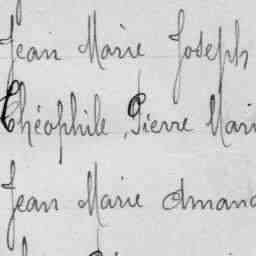 Jean Marie Joseph
Théophile, Pierre Mari
Jean Marie Amand